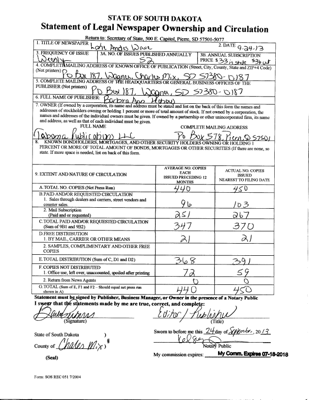 STATE OF SOUTH DAKOTA
Statement of Legal Newspaper Ownership and Circulation
Return to: Secretary of State, 500 E. Capitol, Pierre, SD 57501-5077
1. TITLE OF NEWSPAPER
2. DATE 9-24-13
3. FREQUENCY OF ISSUE Weekly
3A. NO. OF ISSUES PUBLISHED ANNUALLY 52
3B. ANNUAL SUBSCRIPTION PRICE
4. COMPLETE MAILING ADDRESS OF KNOWN OFFICE OF PUBLICATION (Street, City, County, State and ZIP+4 Code) (Not printers)
PO Box 187, Wagner, Charles Mix, SD 57380-0187
5. COMPLETE MAILING ADDRESS OF THE HEADQUARTERS OF GENERAL BUSINESS OFFICES OF THE PUBLISHER (Not printer)
PO Box 187, Wagner, SD 57380-0187
6. FULL NAME OF PUBLISHER Barbara
7. OWNER (If owned by a corporation, its name and address must be stated and list on the back of this form the names and addresses of stockholders owning or holding 1 percent or more of total amount of stock. If not owned by a corporation, the names and addresses of the individual owners must be given. If owned by a partnership or other unincorporated firm, its name and address, as well as that of each individual must be given.
FULL NAME
COMPLETE MAILING ADDRESS
Publications LLC
PO Box 578, Pierre, SD 57501
8. KNOWN BONDHOLDERS, MORTGAGES, AND OTHER SECURITY HOLDERS OWNING OR HOLDING 1 PERCENT OR MORE OF TOTAL AMOUNT OF BONDS, MORTGAGES OR OTHER SECURITIES (If there are none, so state. If more space is needed, list on back of this form.
9. EXTENT AND NATURE OF CIRCULATION
AVERAGE NO. COPIES EACH ISSUED PRECEDING 12 MONTHS
ACTUAL NO. COPIES ISSUED NEAREST TO FILING DATE
A. TOTAL NO. COPIES (Net Press Run) 440 450
B. PAID AND/OR REQUESTED CIRCULATION
1. Sales through dealers and carriers, street vendors and counter sales. 96 103
2. Mail Subscription (Paid and or requested) 251 267
C. TOTAL PAID AND/OR REQUESTED CIRCULATION (Sum of 9B1 and 9B2) 347 370
D. FREE DISTRIBUTION
1. BY MAIL, CARRIER OR OTHER MEANS 21 21
2. SAMPLES, COMPLIMENTARY AND OTHER FREE COPIES
E. TOTAL DISTRIBUTION (Sum of C, D1 and D2) 368 391
F. COPIES NOT DISTRIBUTED
1. Office use, left over, unaccounted, spoiled after printing 72 59
2. Return from News Agents 0 0
G. TOTAL (Sum of E, F1 and F2 - Should equal net press run shown in A) 440 450
Statement must be signed by Publisher, Business Manager, or Owner in the presence of a Notary Public
I swear that the statements made by me are true, correct, and complete:
Editor / Publisher
(Signature) (Title)
State of South Dakota )
County of Charles Mix )
Sworn to before me this 24 day of September, 2013.
Notary Public
(Seal)
My commission expires: My Comm. Expires 07-18-2018
Form: SOS REC 051 7/2004